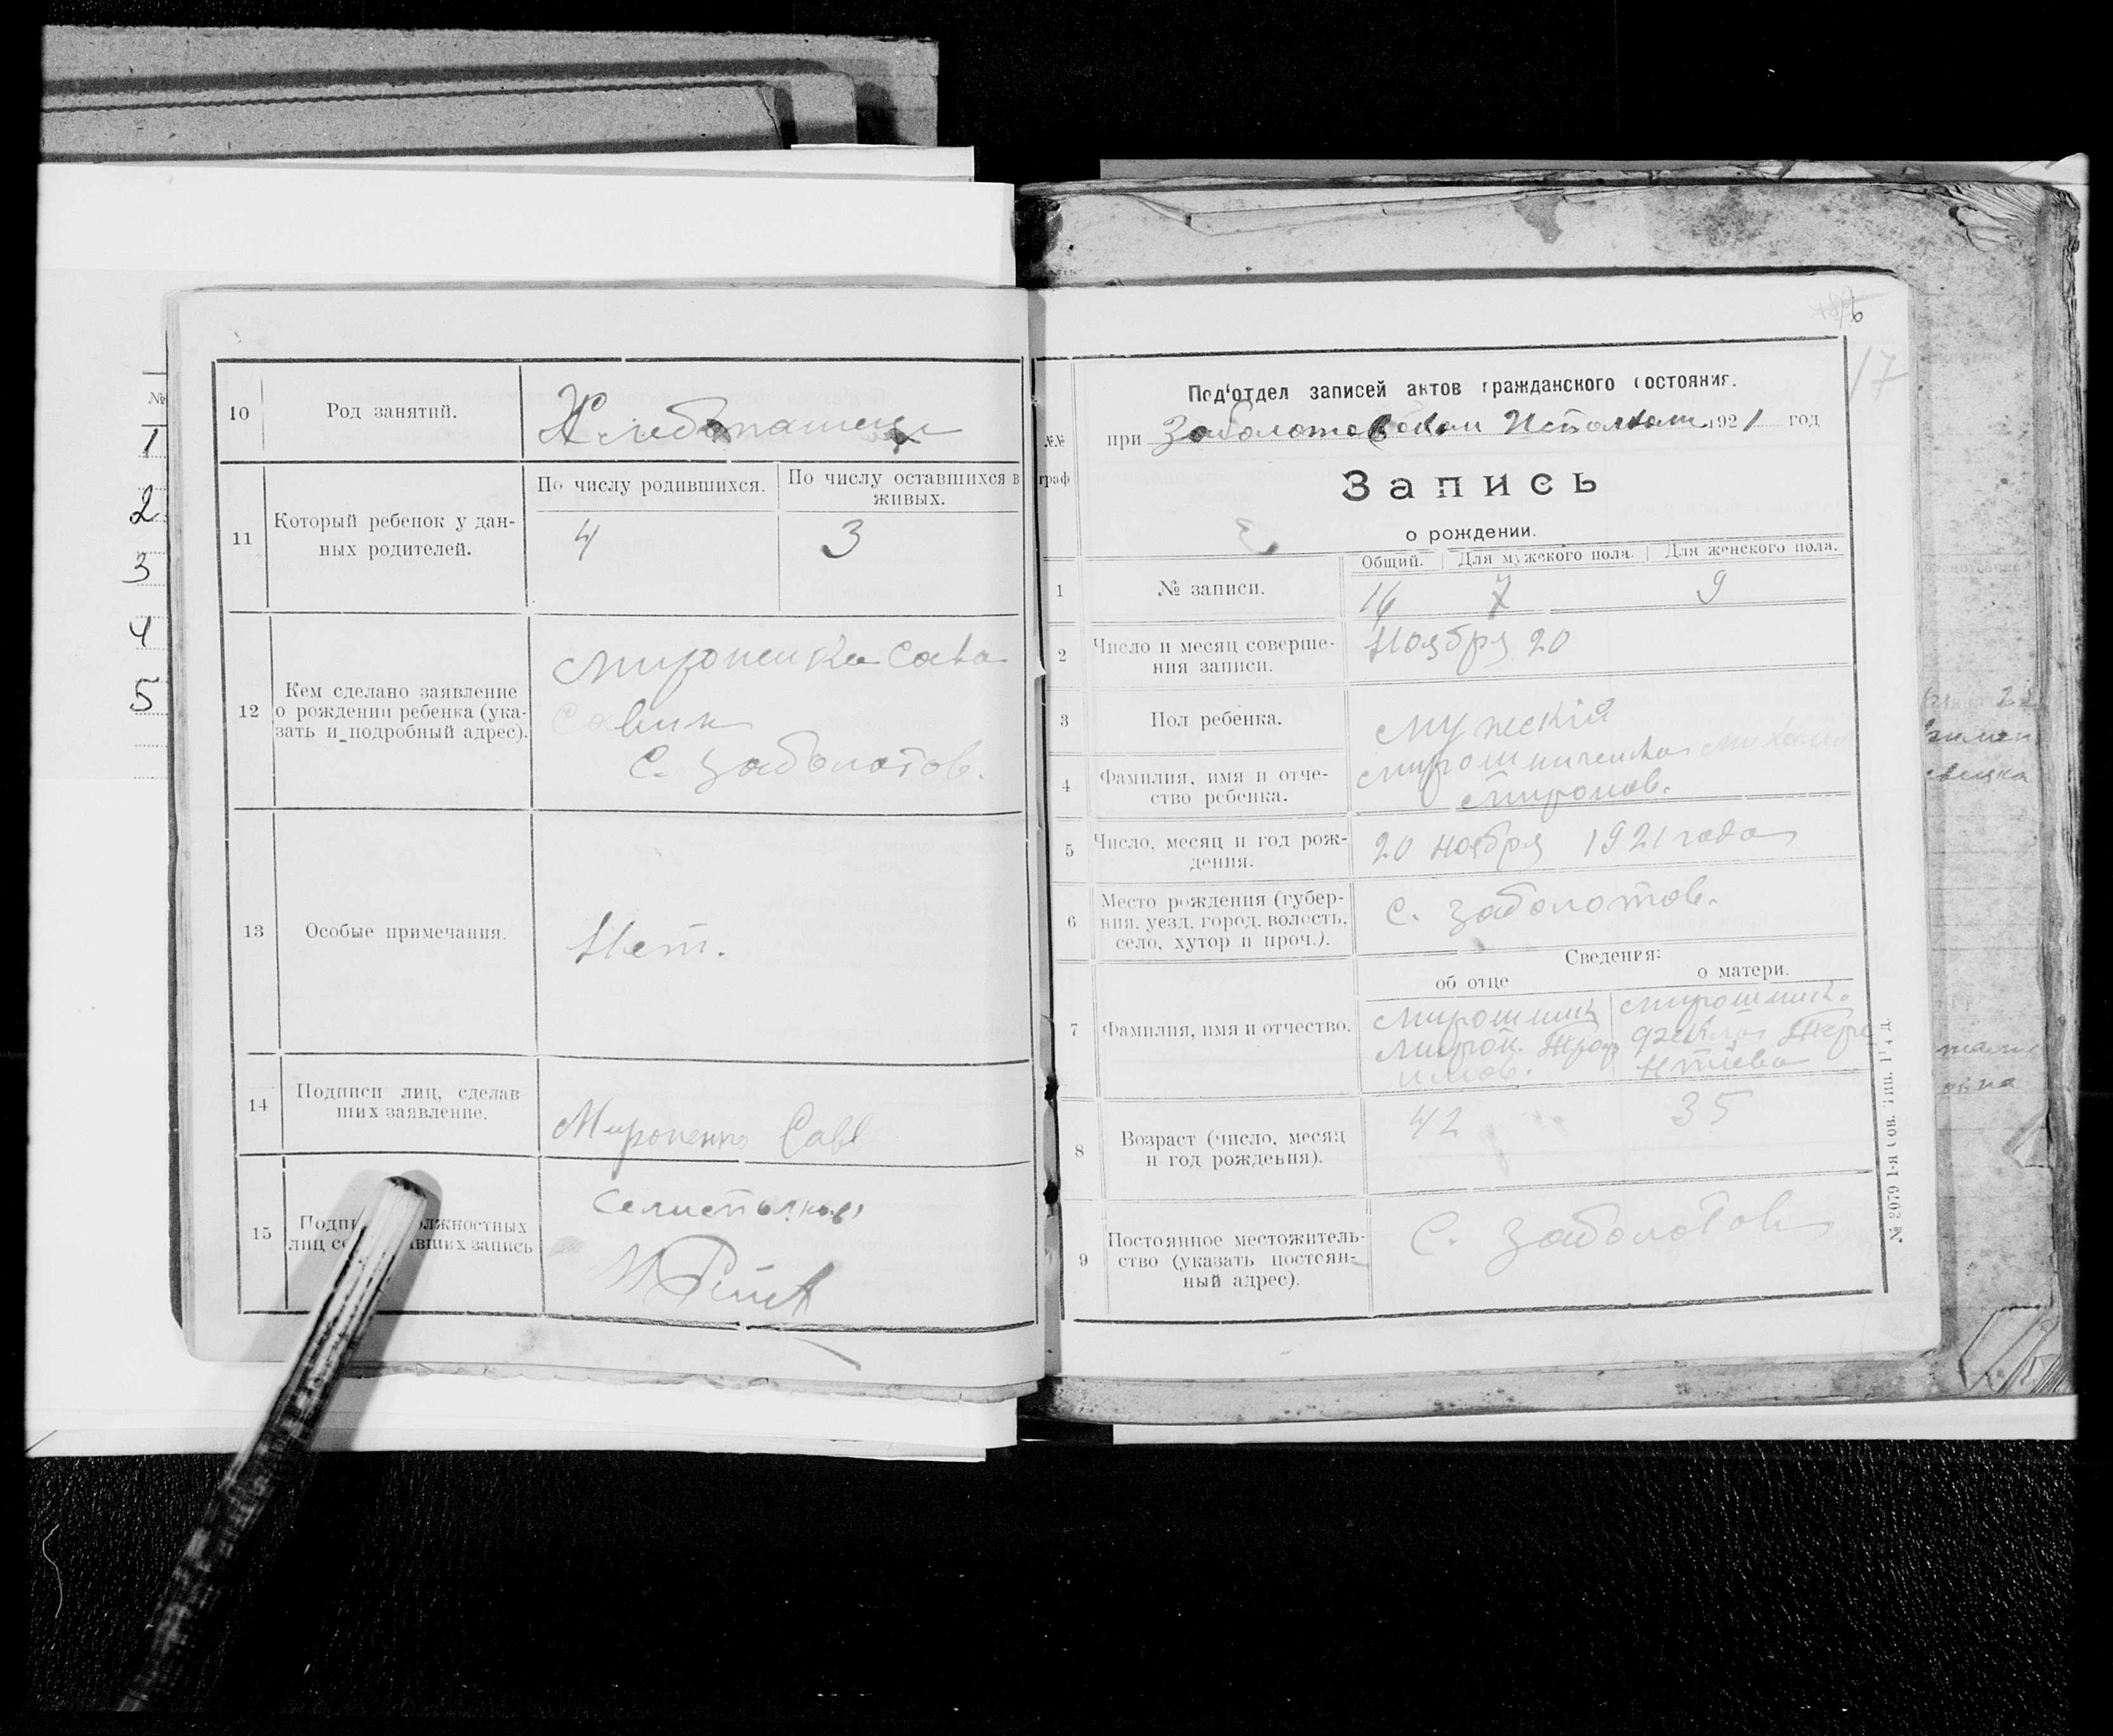 №
1
2
3
4
5
10 Род занятий. Хлебопашец
11 Который ребенок у дан-
ных родителей.
По числу родившихся. По числу оставшихся в
живых.
4 3
12 Кем сделано заявление
о рождении ребенка (ука-
зать и подробный адрес).
Мироненка Сава
Савин
С. Заболотов.
13 Особые примечания. Нет.
14 Подписи лиц, сделав
ших заявление.
Мироненко Савв
15
лиц
запись
17
Под'отдел записей актов гражданского состояния.
при Заболотовском Исполкоме 1921 год
№№
граф
Запись
о рождении.
Общий. Для мужского пола. Для женского пола.
1 № записи. 16 7 9
2 Число и месяц соверше-
ния записи.
Ноября 20
3 Пол ребенка. Мужескій
4 Фамилия, имя и отче-
ство ребенка.
Мирошниченка Михаил
Миронов.
5 Число, месяц и год рож-
дения.
20 ноября 1921 года
6 Место рождения (губер-
ния, уезд, город, волость,
село, хутор и проч.).
С. Заболотов.
Сведения:
об отце о матери.
7 Фамилия, имя и отчество.
Мирошнич Мирошнич.
Мирон. Фекла
8 Возраст (число, месяц
и год рождения).
42 35
9 Постоянное местожитель-
ство (указать постоян-
ный адрес).
С. Заболотов
№ 3079 1-я Сов. Тип.